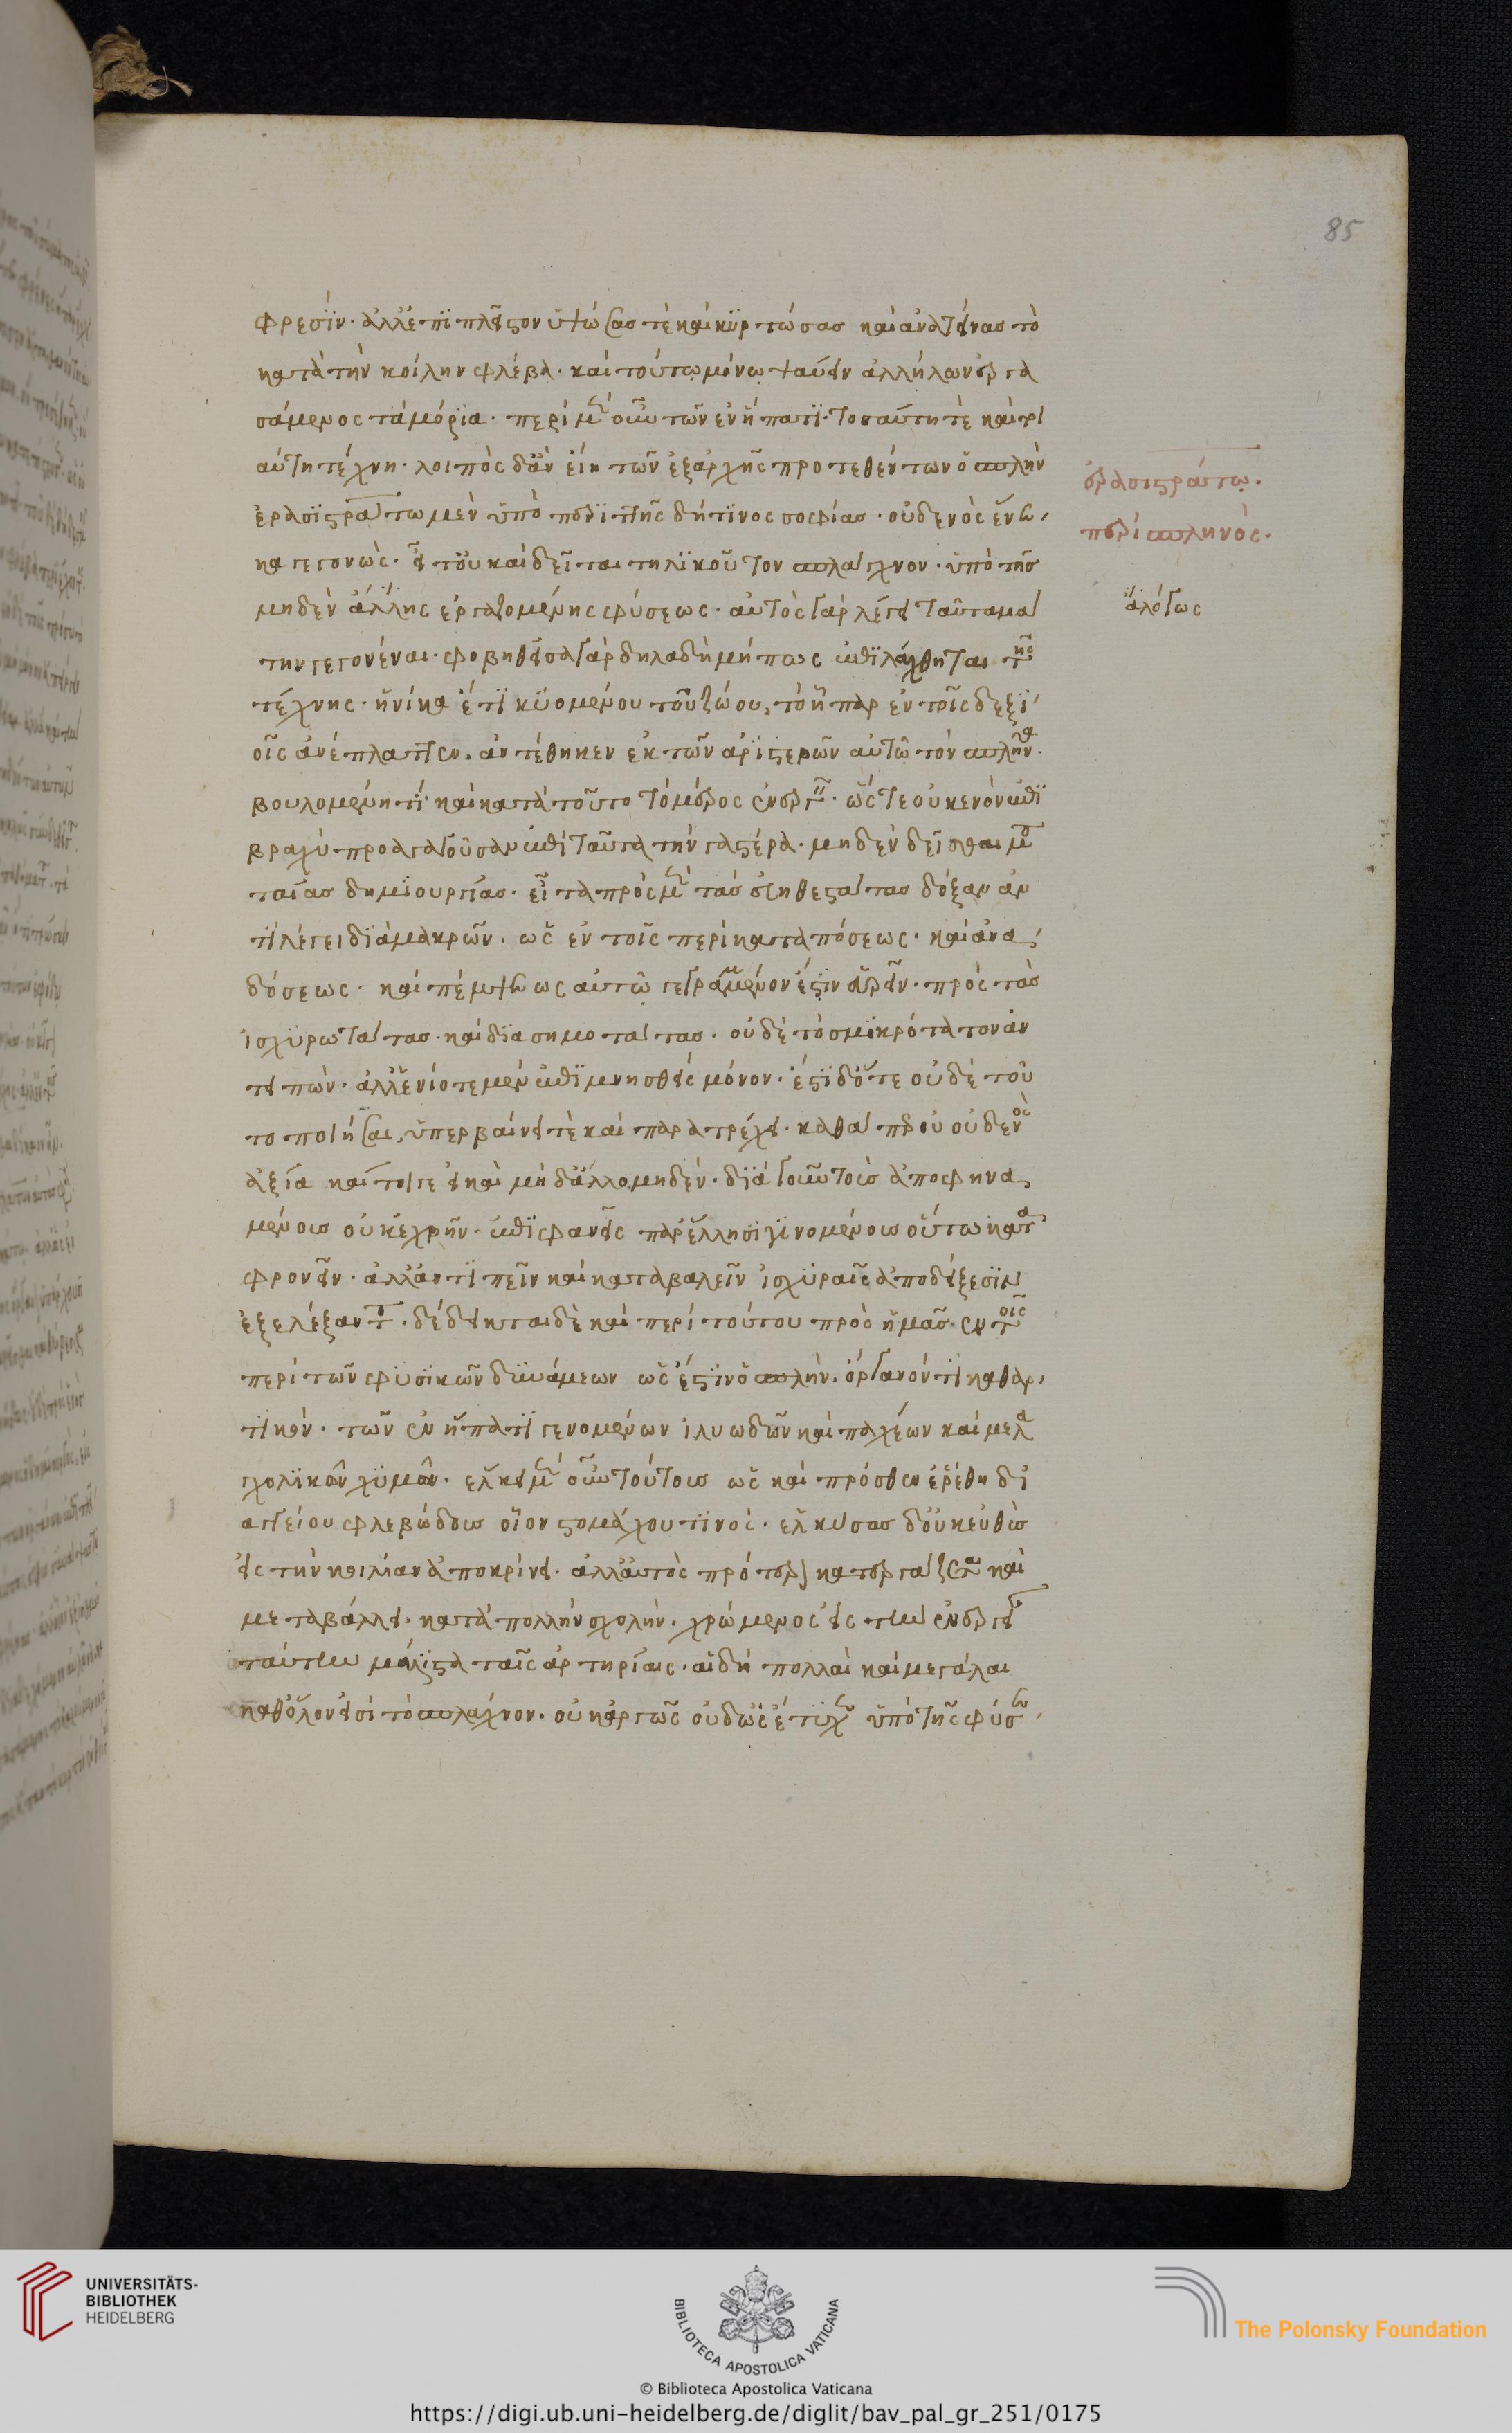 85
φρεσϊν· ἀλλ' ἐπϊ πλεῖστον ὑψώσας τὲ καὶ κυρτώσας καὶ ἀνατείνας τὸ
κατὰ τὴν κοίλην φλέβα· καὶ τούτῳ μόνῳ ψαύειν ἀλλήλων ἐργα
σάμενος τὰ μόρϊα· περὶ μὲν οὖν τῶν ἐν ἥπατϊ· τοσαύτη τὲ καὶ τοι
αύτη τέχνη· λοιπὸς δ' ἂν εἴη τῶν ἐξαρχῆς προτεθέντων ὁ σπλὴν
ἐρασϊστράτω μὲν ὑπὸ περϊττῆς δήτϊνος σοφίας· οὐδενὸς ἕνε
κα γεγονὼς· εἴ του καὶ δεῖται τηλϊκοῦτον σπλάγχνον· ὑπὸ τῆς
μηδὲν ἄλλης ἐργαζομένης φύσεως· αὐτὸς γὰρ λέγει ταῦτα μά
την γεγονέναι· φοβηθεῖσα γὰρ δηλαδὴ μή πως ἐπϊλάχθηται τῆς
τέχνης· ἡνίκα ἔτϊ κϋομένου τοῦ ζώου, τὸ ἧπαρ ἐν τοῖς δεξϊ
οῖς ἀνέπλαττεν, ἀντέθηκεν ἐκ τῶν ἀρϊστερῶν αὐτῶ τὸν σπλῆνα·
βουλομένη τϊ καὶ κατὰ τοῦτο τὸ μέρος ἐνεργεῖν· ὥς τε οὐκ ἐνὸν ἐπϊ
βραχὺ προαγαγοῦσαν ἐπὶ ταῦτα τὴν γαστέρα· μηδὲν δεῖσθαι μα
ταίας δημϊουργίας· εἶτα πρὸς μὲν τὰς εὐηθεστάτας δόξαν ἀν
τϊλέγει δϊὰ μακρῶν· ὡς ἐν τοῖς περὶ καταπόσεως· καὶ ἀνα
δόσεως· καὶ πέψεως αὐτῶ γεγραμμένον ἐστϊν εὑρεῖν· πρὸς τὰς
ἰσχϋρωτάτας· καὶ δϊασημοτάτας· οὐδὲ τὸ σμϊκρότατον ἀν
τειπών· ἀλλ' ἐνίοτε μὲν ἐπϊμνησθεὶς μόνον· ἔστϊ δ' ὅτε οὐδὲ τοῦ
το ποιήσας, ὑπερβαίνει τὲ καὶ παρατρέχει· καθάπερ οὐ οὐδενὸς
ἀξία καίτοιγε εἰ καὶ μὴ δ' ἄλλο μηδὲν· δϊά γ' οὖν τοῖς ἀποφηνα
μένοις οὐκ ἐχρῆν· ἐπϊφανεῖς παρ' ἕλλησϊ γϊνομένοις οὕτω κατα
φρονεῖν· ἀλλ' ἀντϊπεῖν καὶ καταβαλεῖν ἰσχϋραῖς ἀποδείξεσϊν
ἐξελέξαντο· δέδεικται δὲ καὶ περὶ τούτου πρὸς ἡμᾶς ἐν τοῖς
περὶ τῶν φϋσϊκῶν δϋνάμεων ὡς ἔστϊν ὁ σπλὴν, ὄργανόν τϊ καθαρ
τϊκὸν· τῶν ἐν ἥπατϊ γενομένων ἰλυωδῶν καὶ παχέων καὶ μελαγ
χολϊκῶν χϋμῶν· ἕλκει μὲν οὖν τούτους ὡς καὶ πρόσθεν ἐρρέθη δι
αγγείου φλεβώδους οἷον στομάχου τϊνὸς· ἑλκύσας δ' οὐκ εὐθὺς
εἰς τὴν κοιλίαν ἀποκρίνει· ἀλλ' αὐτὸς πρότερον κατεργάζεται καὶ
μεταβάλλει· κατὰ πολλὴν σχολὴν· χρώμενος εἰς τὴν ἐνέργειαν
ταύτην μάλϊστα ταῖς ἀρτηρίαις· αἳ δὴ πολλαὶ καὶ μεγάλαι
καθ' ὅλον εἰσὶ τὸ σπλάγχνον· οὐκ ἀργῶς οὐδ' ὡς ἔτϋχεν ὑπὸ τῆς φύσεως
ἐρασιστράτω·
περὶ σπληνὸς·
ἀλόγως
UNIVERSITÄTS-
BIBLIOTHEK
HEIDELBERG
BIBLIOTECA APOSTOLICA VATICANA
The Polonsky Foundation
© Biblioteca Apostolica Vaticana
https://digi.ub.uni-heidelberg.de/diglit/bav_pal_gr_251/0175